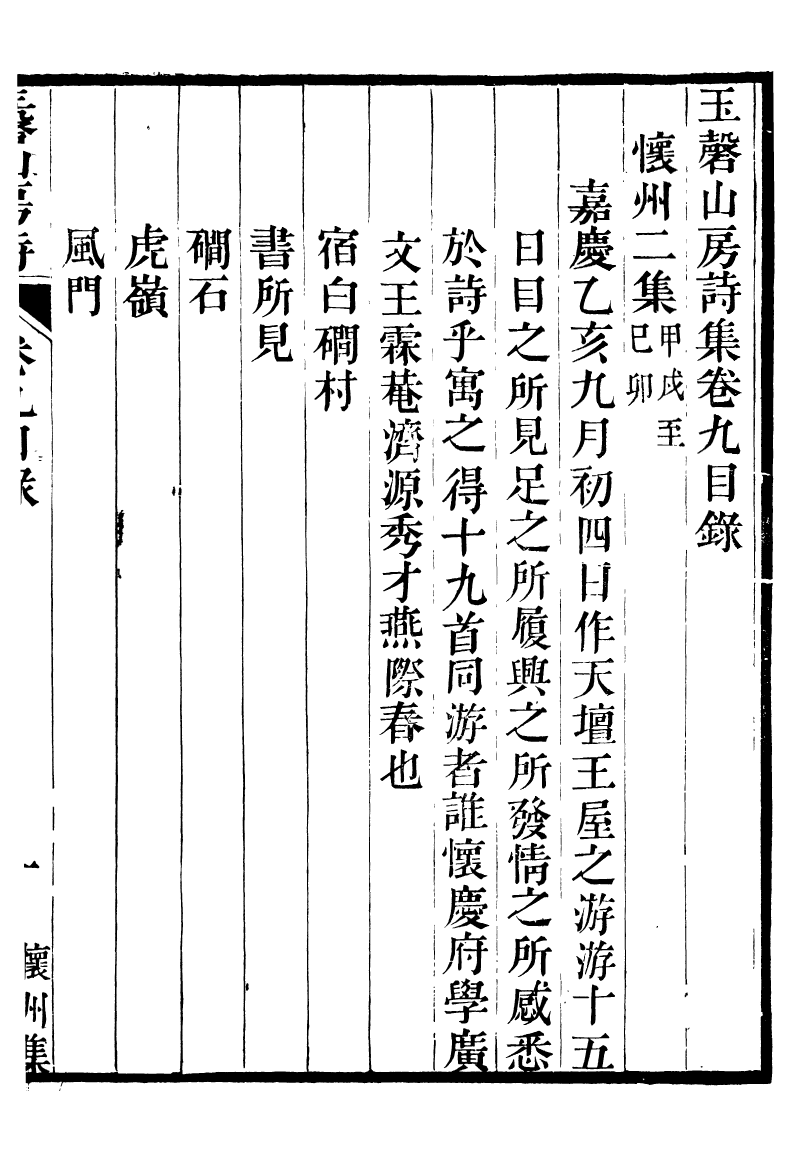 玉磬山房詩集卷九目錄
懷州二集甲戌至己卯
嘉慶乙亥九月初四日作天壇王屋之游游十五
日目之所見足之所履興之所發情之所感悉
於詩乎寓之得十九首同游者誰懷慶府學廣
文王霖菴濟源秀才燕際春也
宿白磵村
書所見
磵石
虎嶺
風門
山房詩
卷九目錄
一
懷州集